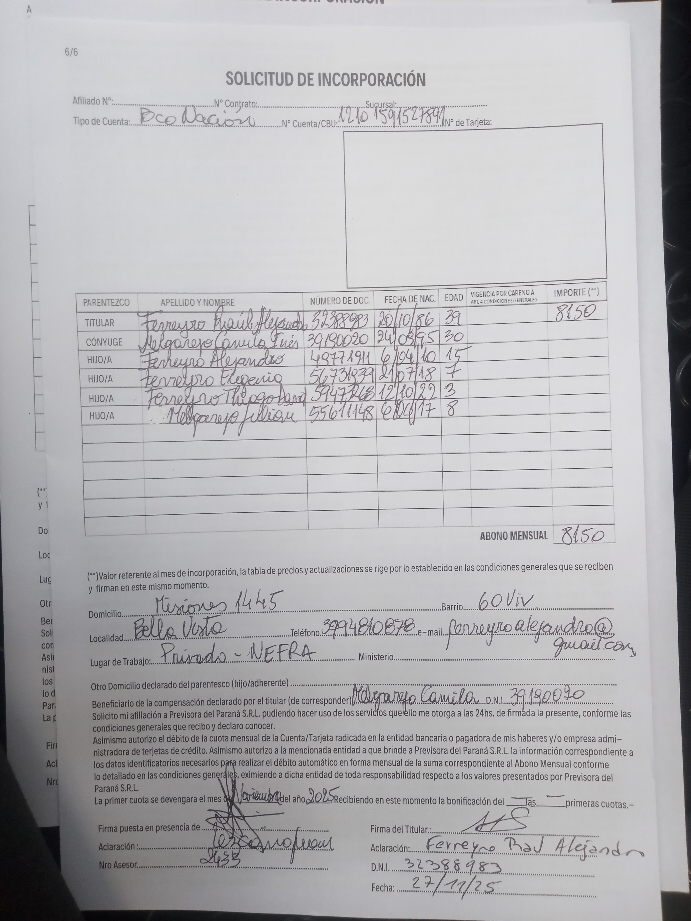 6/6
SOLICITUD DE INCORPORACIÓN
Afiliado Nº: Nº Contrato: Sucursal:
Tipo de Cuenta: Bco Nación Nº Cuenta/CBU: Nº de Tarjeta:
PARENTEZCO APELLIDO Y NOMBRE NÚMERO DE DOC. FECHA DE NAC. EDAD VIGENCIA POR CARENCIA IMPORTE (**)
TITULAR Ferreyro Raúl Alejandro 32388983 20/10/86 39 8150
CONYUGE Melgarejo Camila Inés 39190020 24/03/95 30
HIJO/A Ferreyro Alejandro 49771911 6/04/10 15
HIJO/A Ferreyro Eugenia 21/07/18 7
HIJO/A Ferreyro Thiago 12/10/22 3
HIJO/A Melgarejo Julian 55611148 6/04/17 8
ABONO MENSUAL 8150
(**)Valor referente al mes de incorporación, la tabla de precios y actualizaciones se rige por lo establecido en las condiciones generales que se reciben
y firman en este mismo momento.
Domicilio Misiones 1445 Barrio 60 Viv
Localidad Bella Vista Teléfono 3994810878 e-mail ferreyroalejandro@
gmail.com
Lugar de Trabajo: Privado - NEFRA Ministerio
Otro Domicilio declarado del parentesco (hijo/adherente)
Beneficiario de la compensación declarado por el titular (de corresponder) Melgarejo Camila D.N.I. 39190020
Solicito mi afiliación a Previsora del Paraná S.R.L. pudiendo hacer uso de los servicios que ello me otorga a las 24hs. de firmada la presente, conforme las
condiciones generales que recibo y declaro conocer.
Asimismo autorizo el débito de la cuota mensual de la Cuenta/Tarjeta radicada en la entidad bancaria o pagadora de mis haberes y/o empresa admi-
nistradora de terjetas de crédito. Asimismo autorizo a la mencionada entidad a que brinde a Previsora del Paraná S.R.L. la información correspondiente a
los datos identificatorios necesarios para realizar el débito automático en forma mensual de la suma correspondiente al Abono Mensual conforme
lo detallado en las condiciones generales, eximiendo a dicha entidad de toda responsabilidad respecto a los valores presentados por Previsora del
Paraná S.R.L.
La primer cuota se devengara el mes de Noviembre del año 2025 Recibiendo en este momento la bonificación del las primeras cuotas.-
Firma puesta en presencia de Firma del Titular:
Aclaración: Aclaración: Ferreyro Raul Alejandro
Nro Asesor: D.N.I. 32388983
Fecha: 27/11/25